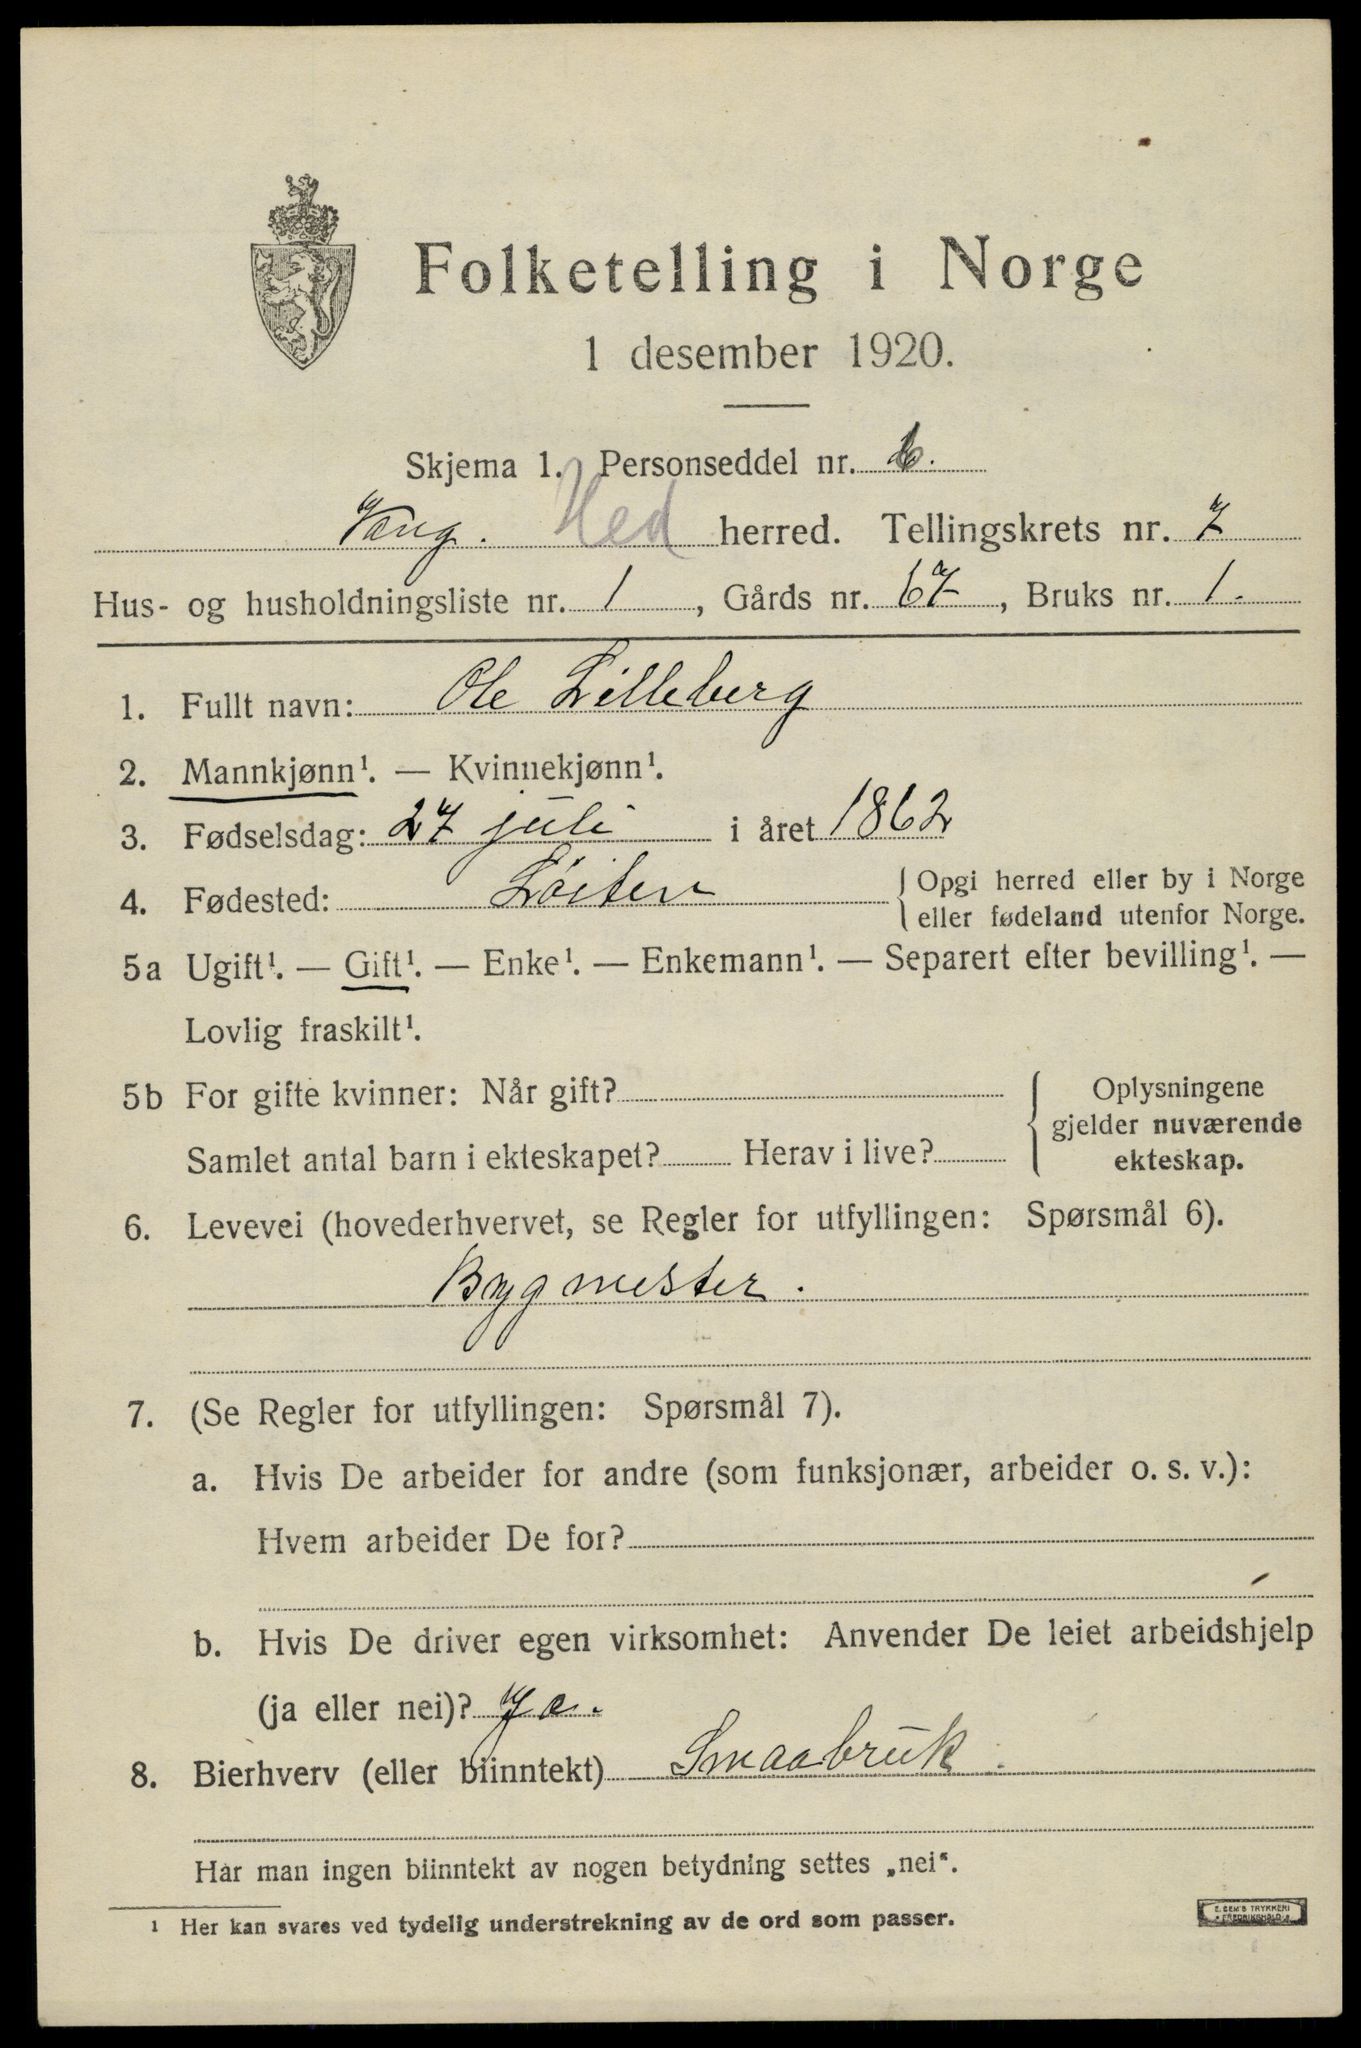 Folketelling i Norge
1 desember 1920.
Skjema 1. Personseddel nr.
Vang. Hed herred. Tellingskrets nr. 7
Hus- og husholdningsliste nr. 1, Gårds nr. 67, Bruks nr. 1.
1. Fullt navn: Ole Lilleberg
2. Mannkjønn¹. — Kvinnekjønn¹.
3. Fødselsdag: 27 juli i året 1862
4. Fødested: Löiten { Opgi herred eller by i Norge
eller fødeland utenfor Norge.
5a Ugift¹. — Gift¹. — Enke¹. — Enkemann¹. — Separert efter bevilling¹. —
Lovlig fraskilt¹.
5b For gifte kvinner: Når gift? { Oplysningene
gjelder nuværende
Samlet antal barn i ekteskapet? Herav i live? ekteskap.
6. Levevei (hovederhvervet, se Regler for utfyllingen: Spørsmål 6).
Bygmester.
7. (Se Regler for utfyllingen: Spørsmål 7).
a. Hvis De arbeider for andre (som funksjonær, arbeider o. s. v.):
Hvem arbeider De for?
b. Hvis De driver egen virksomhet: Anvender De leiet arbeidshjelp
(ja eller nei)? Ja.
8. Bierhverv (eller biinntekt) Smaabruk.
Har man ingen biinntekt av nogen betydning settes „nei“.
¹ Her kan svares ved tydelig understrekning av de ord som passer.
E. SEM'S TRYKKERI
FREDRIKSHALD